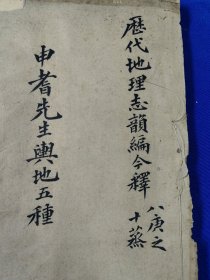 歷代地理志韻編今釋
八庚之
十蒸
申耆先生輿地五種